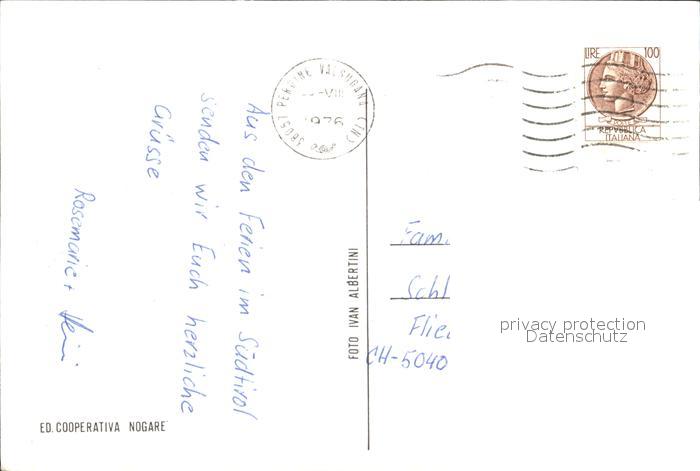 Aus den Ferien im Südtirol
senden wir Euch herzliche
Grüsse
Rosemarie +
38057 PERGINE VALSUGANA (TN)
-VIII
1976
LIRE 100
REPVBBLICA
ITALIANA
Fam.
Schl
Flie
CH-5040
privacy protection
Datenschutz
FOTO IVAN ALBERTINI
ED. COOPERATIVA NOGARE'